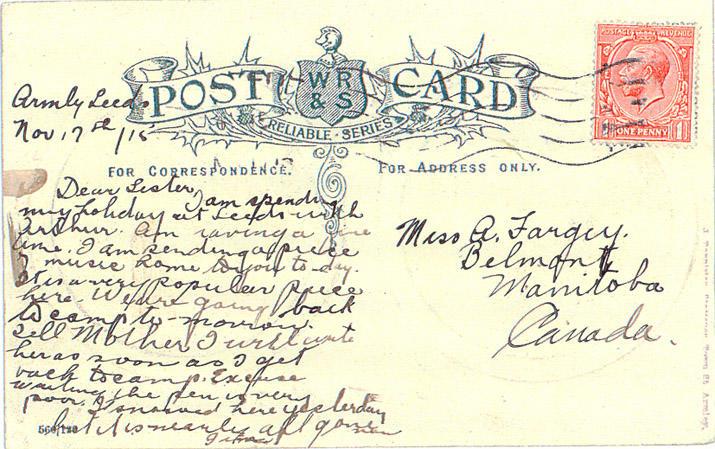 POST CARD
WR
& S
RELIABLE · SERIES
POSTAGE REVENUE
ONE PENNY
Armly Leeds
Nov. 17th/15
FOR CORRESPONDENCE.
FOR ADDRESS ONLY.
Dear Sister, I am spending
my holiday at Leeds with
Arthur. Am having a fine
time. I am sending a piece
of music home to you to-day.
It is a very popular piece
here. We are going back
to camp to-morrow.
Tell Mother I will write
her as soon as I get
back to camp. Excuse
writing the pen is very
poor. It snowed here yesterday
but it is nearly all gone now
Miss A. Fargey.
Belmont
Manitoba
Canada.